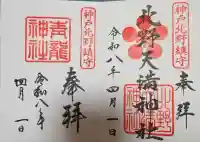 奉拝
神戸北野鎮守
北野天満神社
令和八年四月一日
神戸北野鎮守
奉拝
青龍神社
令和八年
四月一日